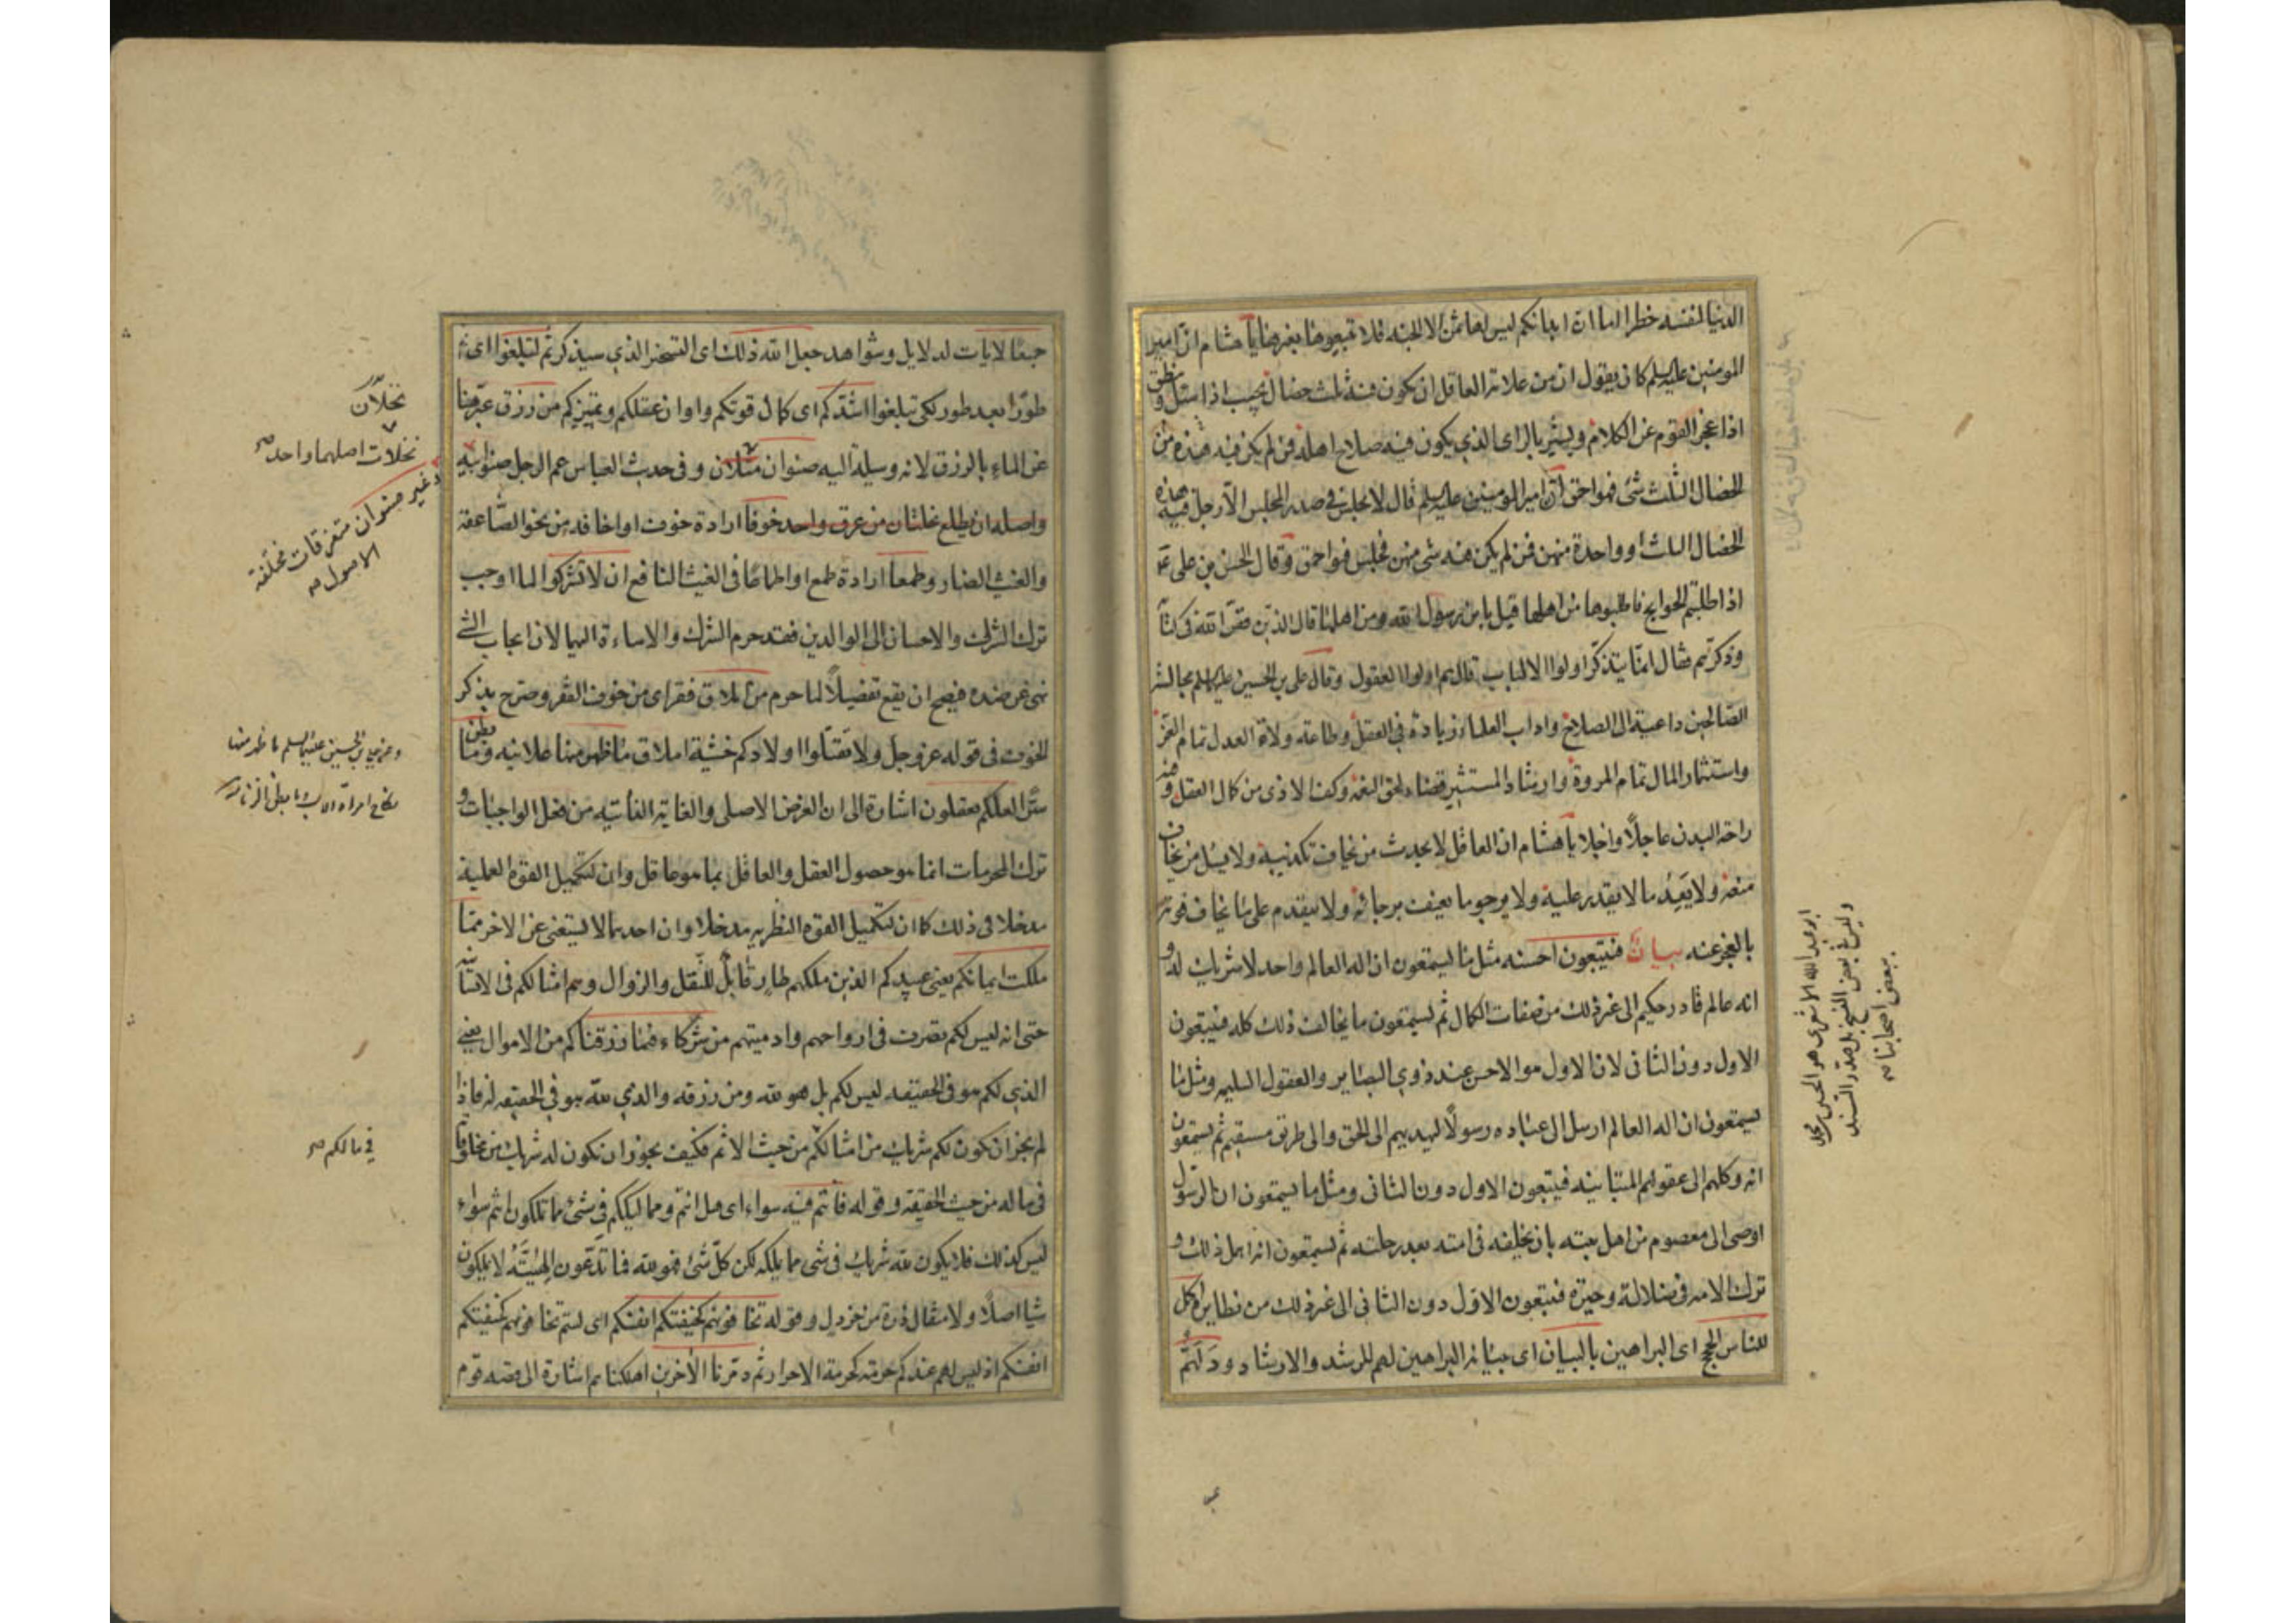 الدنيا لنفسه خطرا اما ان ابدانكم ليس لها ثمن الا الجنة فلا تبيعوها بغيرها يا هشام ان امير
المومنين عليه السلم كان يقول ان من علامة العاقل ان يكون فيه ثلث خصال يجيب اذا سئل وينطق
اذا عجز القوم عن الكلام ويشير بالراى الذي يكون فيه صلاح اهله فمن لم يكن فيه هذه من
الخصال الثلث شئ فهو احمق ان امير المومنين عليه السلم قال لا يجلس في صدر المجلس الا رجل فيه هذه
الخصال الثلث او واحدة منهن فمن لم يكن فيه شئ منهن فجلس فهو احمق وقال الحسن بن على ع
اذا طلبتم الحوايج فاطلبوها من اهلها قيل يابن رسول الله ومن اهلها قال الذين قص الله فى كتابه
وذكرهم فقال انما يتذكر اولوا الالباب قال هم اولوا العقول وقال على بن الحسين عليه السلم مجالسة
الصالحين داعية الى الصلاح واداب العلماء زيادة فى العقل وطاعة ولاة العدل تمام العز
واستثمار المال تمام المروة وارشاد المستشير قضاء لحق النعمة وكف الاذى من كمال العقل وفيه
راحة البدن عاجلا واجلا يا هشام ان العاقل لا يحدث من يخاف تكذيبه ولا يسئل من يخاف
منعه ولا يعد ما لا يقدر عليه ولا يرجو ما يعنف برجائه ولا يقدم على ما يخاف فوته
بالعجز عنه بيان فيتبعون احسنه مثل ما يستمعون ان اله العالم واحد لا شريك له و
انه عالم قادر حكيم الى غير ذلك من صفات الكمال ثم يستمعون ما يخالف ذلك كله فيتبعون
الاول دون الثانى لان الاول هو الاحسن عند ذوي البصاير والعقول السليمه ومثل ما
يستمعون ان اله العالم ارسل الى عباده رسولا ليهديهم الى الحق والى طريق مستقيم ثم يستمعون
انه وكلهم الى عقولهم المتباينه فيتبعون الاول دون الثانى ومثل ما يستمعون ان الرسول
اوصى الى معصوم من اهل بيته بان يخليفه فى امته بعد رحلته ثم يستمعون انه اهمل ذلك و
ترك الامه فى ضلالة وحيرة فيتبعون الاول دون الثانى الى غير ذلك من نظايره اكمل
للناس الحجج اى البراهين بالبيان اى ببيانه البراهين لهم للرشد والارشاد ودلهم
ابو عبد الله الاشعرى هو الحسين بن محمد
وليس فى بعض النسخ بل صدر السند
ببعض اصحابنا
جمعا لايات لدلايل وشواهد جعل الله ذلك اى التسخير الذي سيذكر ثم لتبلغوا اى
طورا بعد طور لكى تبلغوا اشدكم اى كمال قوتكم واوان عقلكم وتميزكم من رزق عبر هنا
عن الماء بالرزق لانه وسيلة اليه صنوان مثلان وفى حديث العباس عم الرجل صنو ابيه
واصله ان يطلع نخلتان من عرق واحد خوفا ارادة خوف او اخافة من نحو الصاعقة
والغيث الضار وطمعا ارادة طمع او اطماعا فى الغيث النافع ان لا تشركوا لما اوجب
ترك الشرك والاحسان الى الوالدين فقد حرم الشرك والاساءة اليهما لان ايجاب الشئ
نهى عن ضده فيصح ان يقع تفصيلا لما حرم من املاق فقر اى من خوف الفقر وصرح بذكر
الخوف فى قوله عز وجل ولا تقتلوا اولادكم خشية املاق ما ظهر منها علانيه وما بطن
سرا لعلكم تعقلون اشارة الى ان الغرض الاصلى والغاية الغائيه من فعل الواجبات و
ترك المحرمات انما هو حصول العقل والعاقل بما هو عاقل وان لتكميل القوة العملية
مدخلا فى ذلك كما ان لتكميل القوة النظريه مدخلا وان احدهما لا يستغنى عن الاخر مما
ملكت ايمانكم يعنى عبيدكم الذين ملكهم طار قابل للنقل والزوال وهم امثالكم فى الانسانية
حتى انه ليس لكم تصرف فى ارواحهم وادميتهم من شركاء فيما رزقناكم من الاموال يعنى
الذي لكم هو فى الحقيقه ليس لكم بل هو لله ومن رزقه والذي لله هو فى الحقيقه له فاذا
لم يجز ان يكون لكم شريك من امثالكم من حيث الاثم فكيف يجوز ان يكون له شريك من مخلوقاته
فى ماله من حيث الحقيقة وقوله فانتم فيه سواء اى هل انتم ومماليككم فى شئ مما تملكون انتم سواء
ليس كذلك فلا يكون لله شريك فى شئ مما يملكه لكن كل شئ فهو لله فما تدعون الهيته لا يملكون
شيا اصلا ولا مثقال ذرة من خردل وقوله تخافونهم كخيفتكم انفسكم اى لستم تخافونهم كخيفتكم
انفسكم اذ ليس لهم عندكم حرمة كحرمة الاحرار ثم دمرنا الاخرين اهلكناهم اشارة الى قصة قوم
نخلان
نخلات اصلهما واحد
وغير صنوان متفرقات مختلفة
الاصول
وعن على بن الحسين عليهما السلم ما ظهر منها
نكاح امراة الاب وما بطن الزنا
فى مالكم